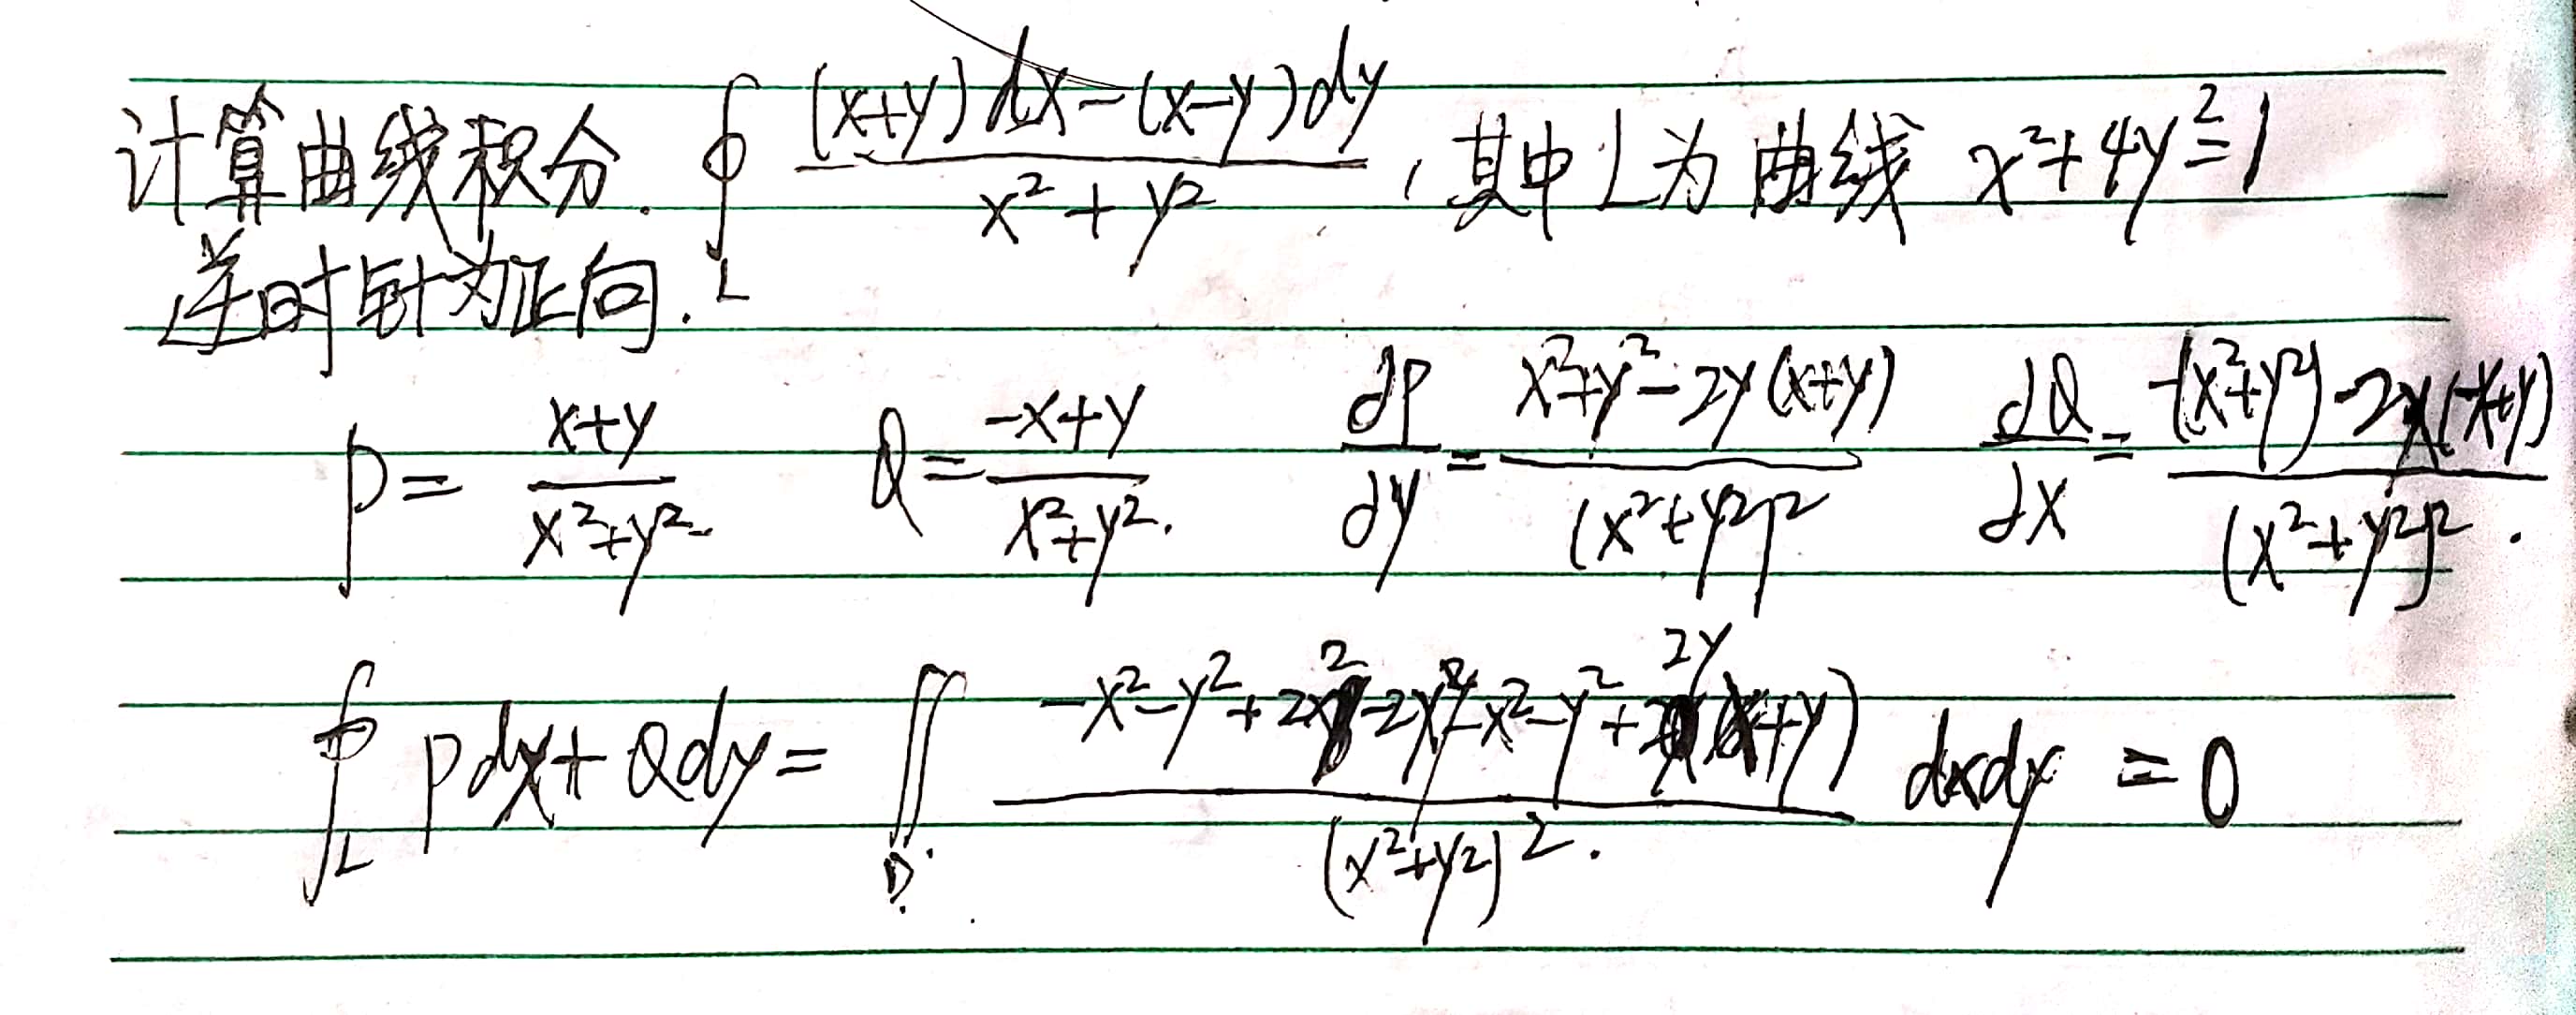 计算曲线积分. ∮_L ((x+y)dx-(x-y)dy)/(x²+y²) , 其中L为曲线 x²+4y²=1
逆时针为正向.
P = (x+y)/(x²+y²) Q = (-x+y)/(x²+y²). dP/dy = (x²+y²-2y(x+y))/(x²+y²)² dQ/dx = (-(x²+y²)-2x(-x+y))/(x²+y²)².
∮_L Pdx+Qdy = ∬_D. (-x²-y²+2x²-2xy-x²-y²+2y(x+y))/(x²+y²)². dxdy = 0